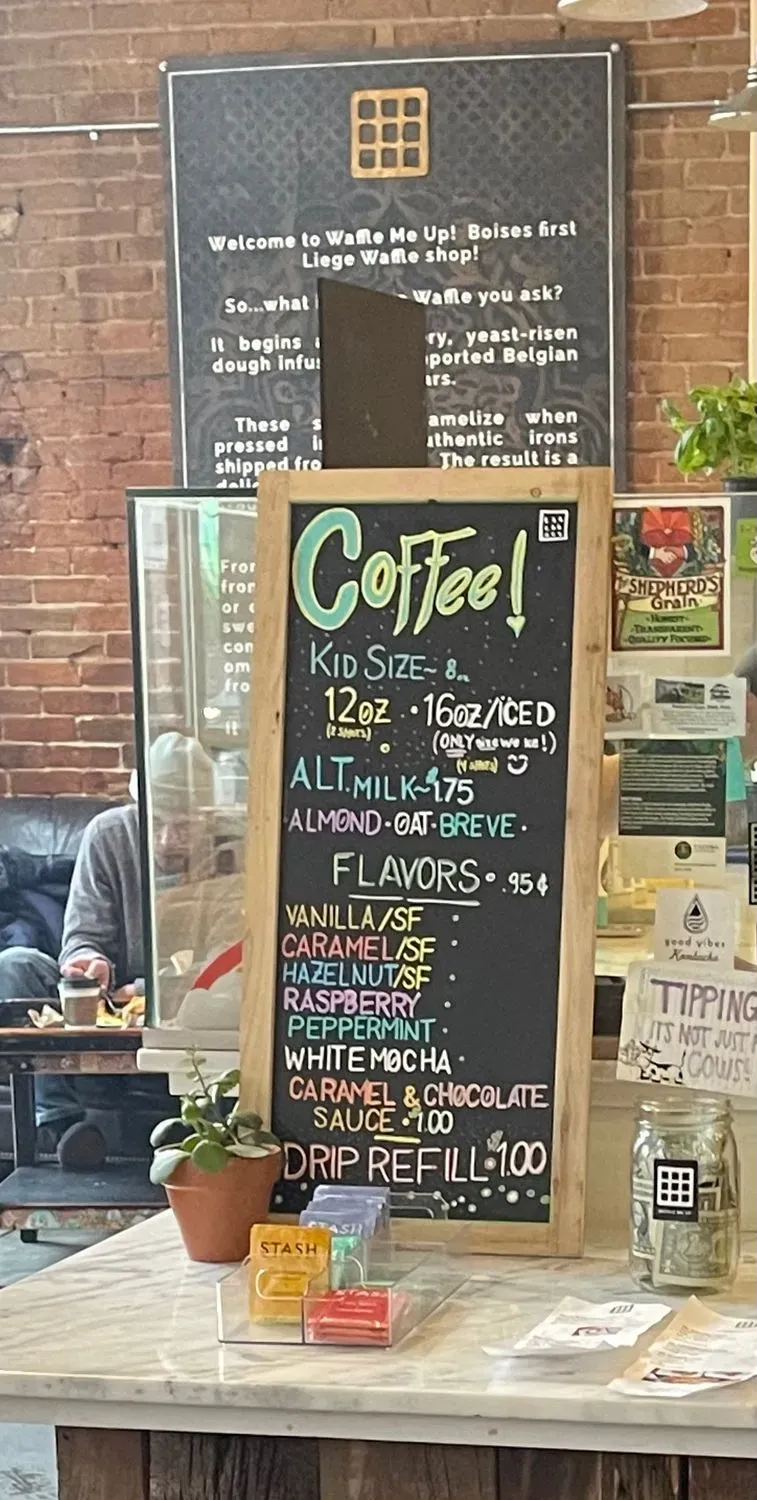 Welcome to Waffle Me Up! Boises first
Liege Waffle shop!
So...what Waffle you ask?
It begins yeast-risen
dough Belgian
These when
pressed irons
shipped The result is a
Coffee!
KID SIZE~ 8oz
12oz · 16oz/iCED
(2 SHOTS) (ONLY size we have!)
(4 SHOTS)
ALT. MILK~ 1.75
ALMOND · OAT · BREVE ·
FLAVORS · .95¢
VANILLA/SF
CARAMEL/SF
HAZELNUT/SF
RASPBERRY
PEPPERMINT
WHITE MOCHA
CARAMEL & CHOCOLATE
SAUCE · 1.00
DRIP REFILL · 1.00
SHEPHERD'S
Grain
HONEST
TRANSPARENT
QUALITY FOCUSED
good vibes
Kombucha
TIPPING
ITS NOT JUST
COWS!
STASH
STASH